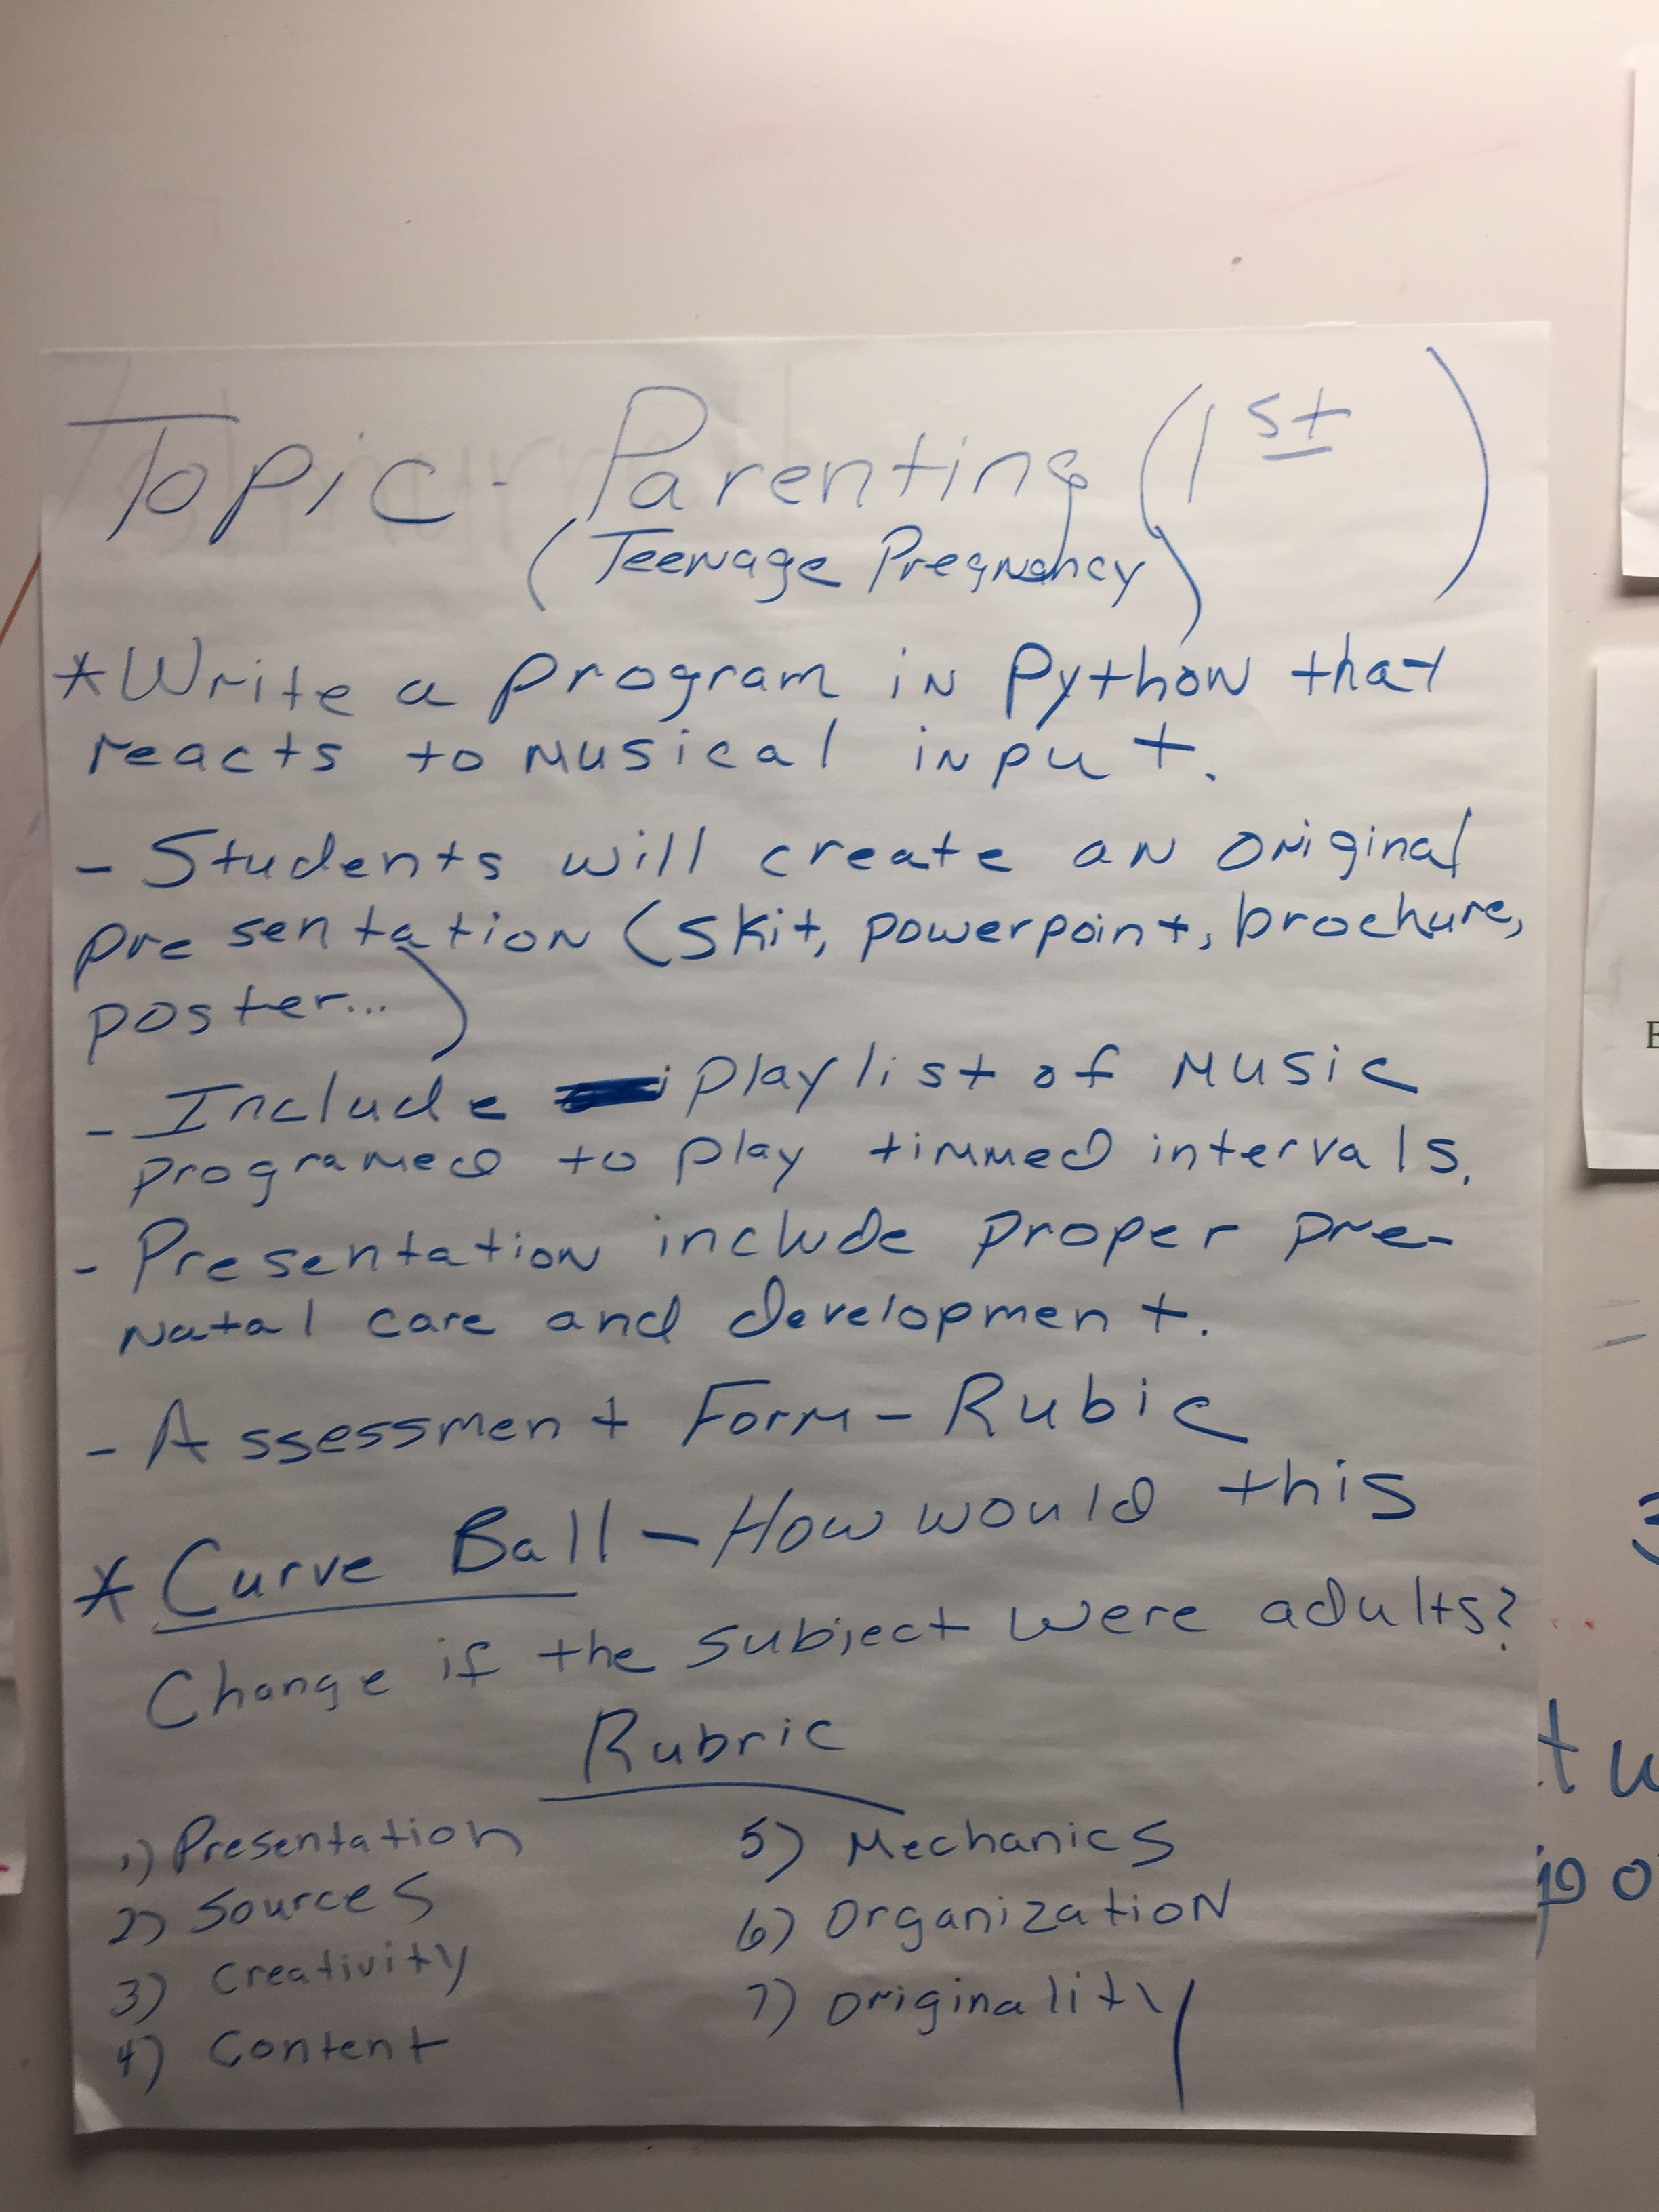 Topic - Parenting (1st)
(Teenage Pregnancy)
* Write a program in Python that
reacts to musical input.
- Students will create an original
presentation (skit, powerpoint, brochure,
poster...)
- Include playlist of music
programed to play timmed intervals.
- Presentation include proper pre-
natal care and development.
- Assessment Form - Rubic
* Curve Ball - How would this
Change if the subject were adults?
Rubric
1) Presentation
2) Sources
3) Creativity
4) Content
5) Mechanics
6) Organization
7) Originality